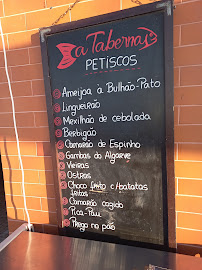 a Taberna
PETISCOS
Ameijoa à Bulhão-Pato
Lingueirão
Mexilhão de cebolada
Berbigão
Camarão de Espinho
Gambas do Algarve
Vieiras
Ostras
Choco frito c/batatas
fritas
Camarão cozido
Pica-Pau
Prego no pão